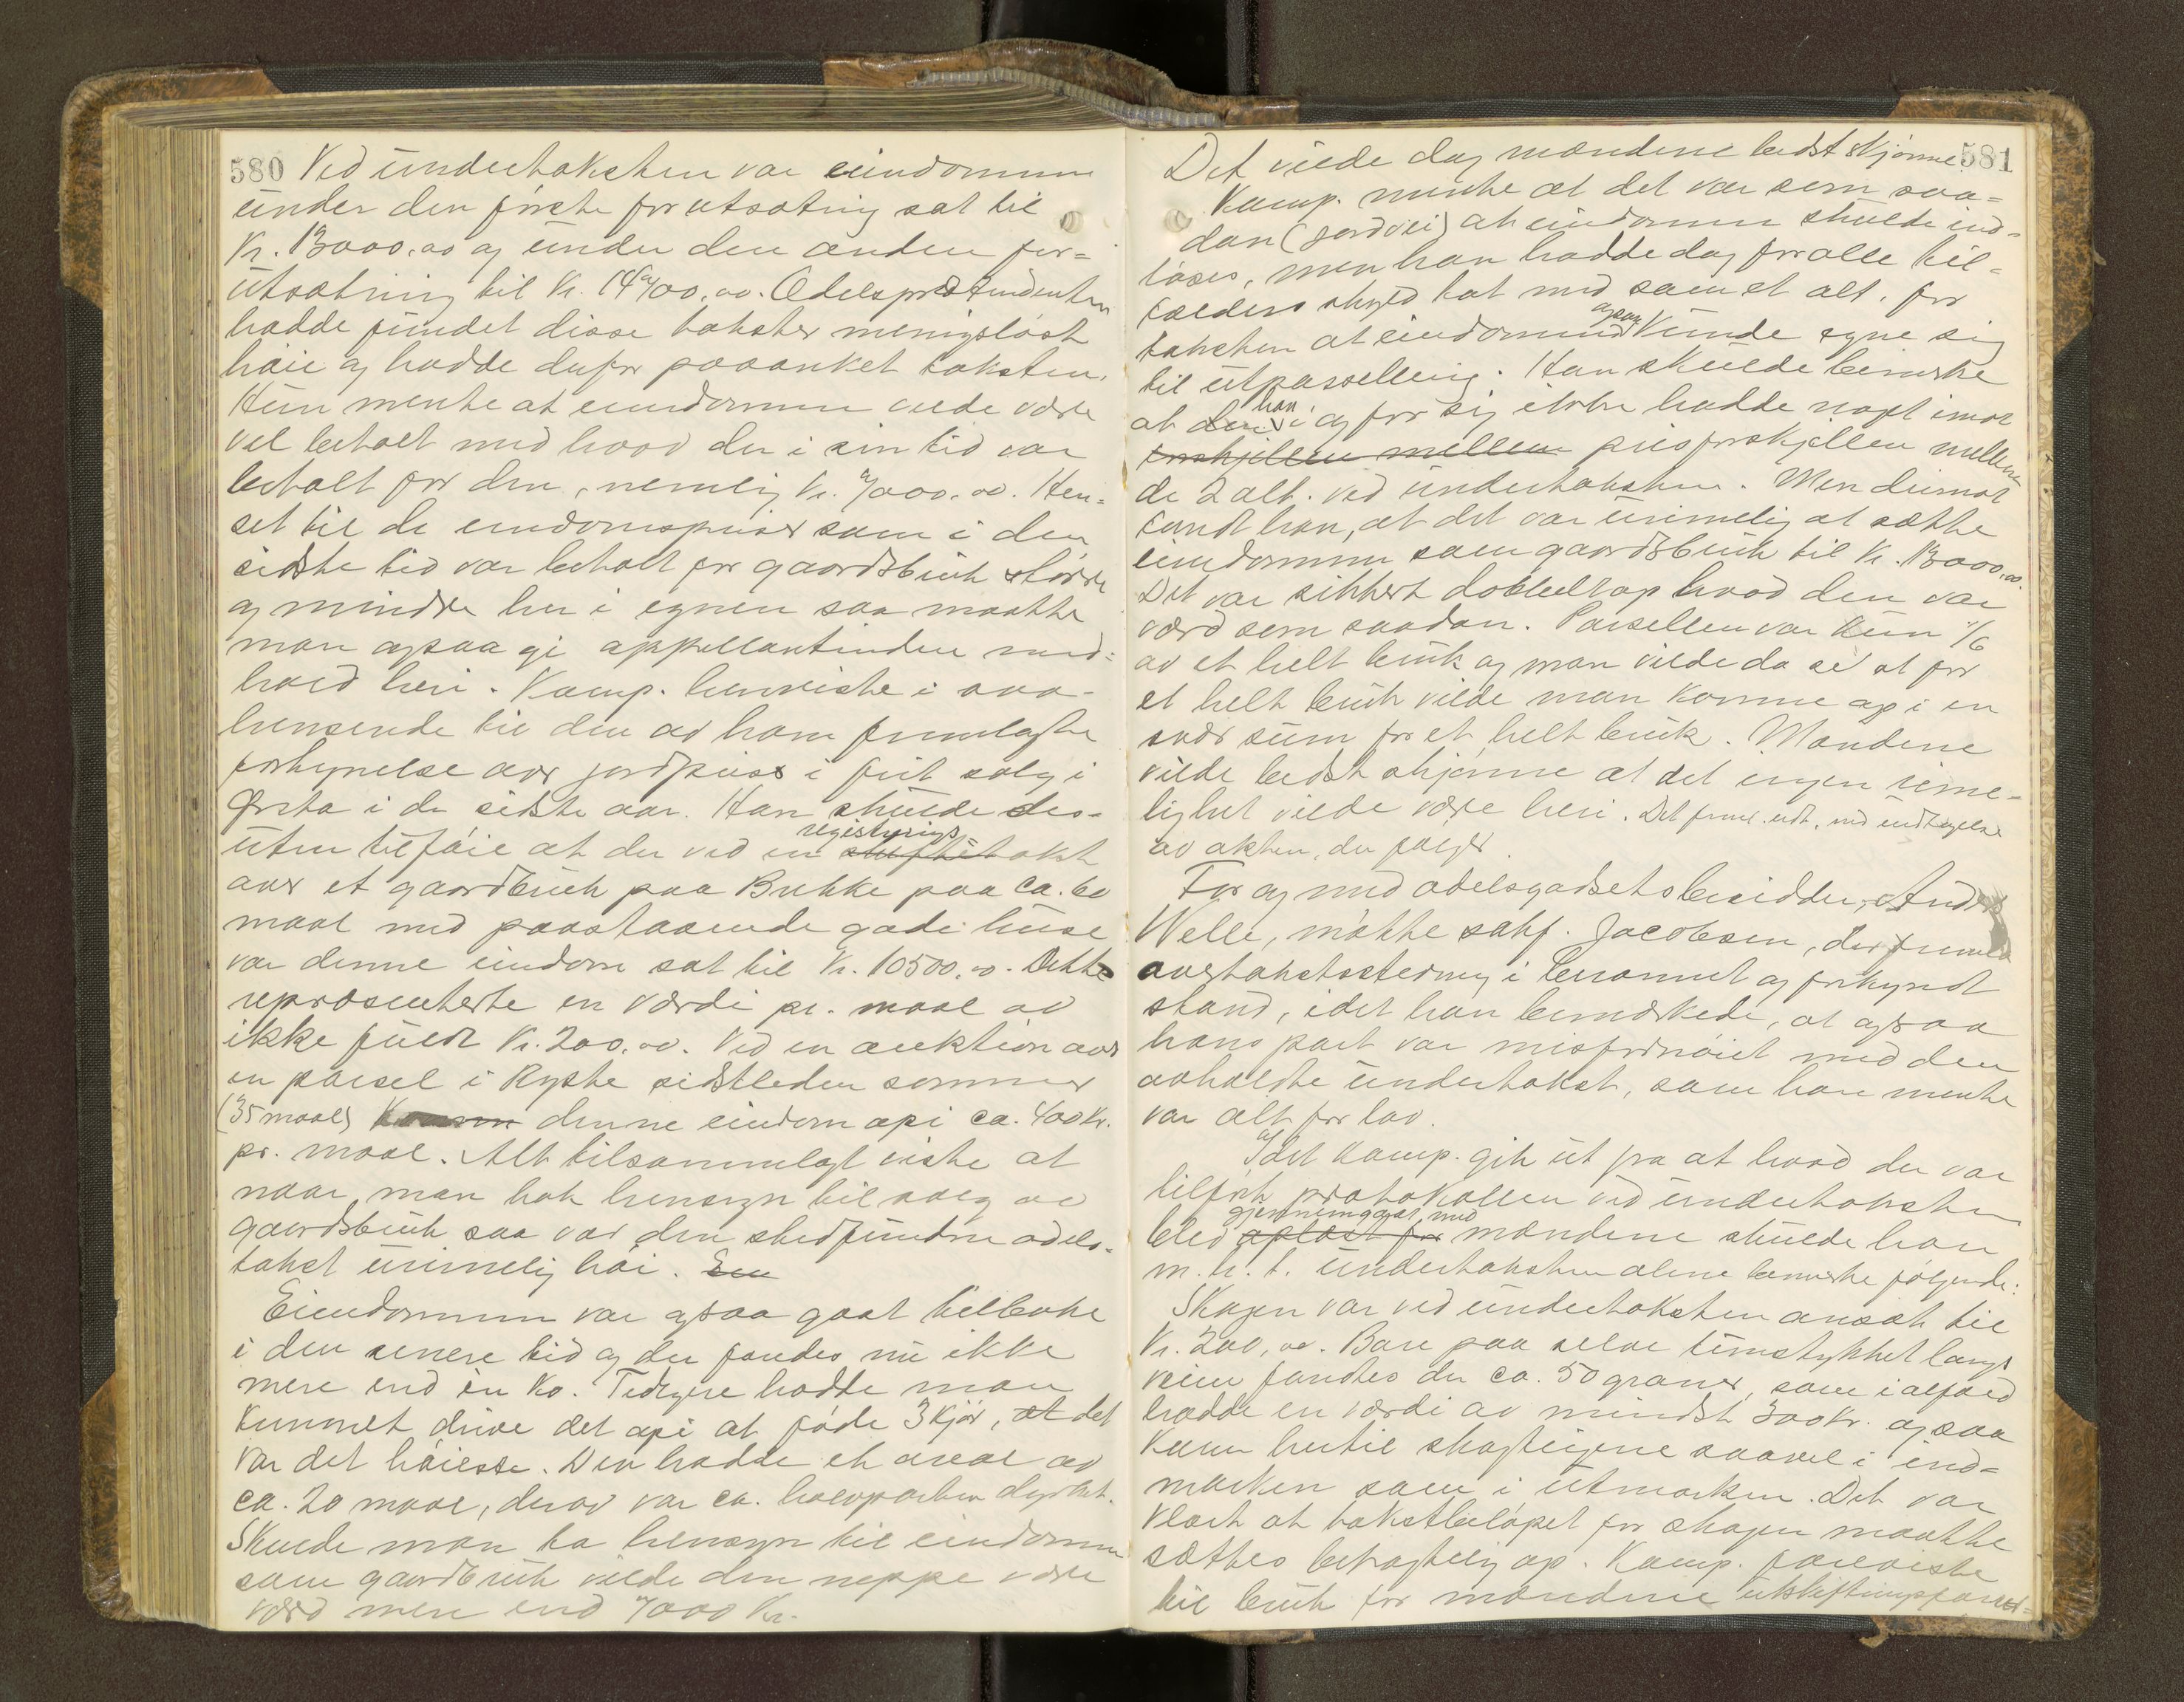 580 Ved undertaksten var eiendommen
under den første forutsætning sat til
Kr. 13000.00 og under den anden for=
utsætning til Kr. 14700.00. Odelsprætendenten
hadde fundet disse takster meningsløst
høie og hadde derfor paaanket taksten.
Hun mente at eiendommen vilde være
vel betalt med hvad der i sin tid var
betalt for den, nemlig Kr. 7000.00. Hen=
set til de eiendomspriser som i den
sidste tid var betalt for gaardsbruk større
og mindre her i egnen saa maatte
man ogsaa gi appellantinden med=
hold heri. Kamp. henviste i saa-
henseende til den av ham fremlagte
fortegnelse over jordpriser i frit salg i
Ørsta i de sidste aar. Han skulde des-
registrerings
uten tilføie at der ved en skiftetakst
over et gaardsbruk paa Brekke paa ca. 60
maal med paastaaende gode huse
var denne eiendom sat til Kr. 10500.00. Dette
repræsenterte en værdi pr. maal av
ikke fuldt Kr. 200.00. Ved en auktion over
en parsel i Ryste sidstleden sommer
(35 maal) kom denne eiendom op i ca. 400 Kr.
pr. maal. Alt tilsammenlagt viste at
naar man tok hensyn til salg av
gaardsbruk saa var den stedfundne odels-
takst urimelig høi. Een
Eiendommen var ogsaa gaat tilbake
i den senere tid og der fandtes nu ikke
mere end èn ko. Tidligere hadde man
kunnet drive det op i at føde 3 kjør, at det
var det høieste. Den hadde et areal av
ca. 20 maal, derav var ca. halvparten dyrket.
Skulde man ta hensyn til eiendommen
som gaardbruk vilde den neppe være
værd mere end 7000 Kr.
581
Det vilde dog mændene bedst skjønne.
Kamp. mente at det var som saa=
dan (jordvei) at eiendommen skulde ind=
løses, men han hadde dog for alle til=
fælders skyld tat med som et alt. for
ogsaa
taksten at eiendommen kunde egne sig
til utparsellering. Han skulde bemerke
han
at den i og for sig ikke hadde noget imot
forskjellen mellem prisforskjellen mellem
de 2 alt. ved undertaksten. Men derimot
fandt han, at det var urimelig at sætte
eiendommen som gaardsbruk til Kr. 13000.00.
Det var sikkert dobbelt op hvad den var
værd som saadan. Parsellen var kun 1/6
av et helt bruk og man vilde da se at for
et helt bruk vilde man komme op i en
svær sum for et helt bruk. Mændene
vilde bedst skjønne at det ingen rime-
lighet vilde være heri. Det freml. udt. med undtagelse
av akten, der følger.
For og med odelsgodsets besidder, Anders
Welle, møtte sakf. Jacobsen, der freml.
overtakstsstevning i berammet og forkyndt
stand, idet han bemerkede, at ogsaa
hans part var misfornøiet med den
avholdte undertakst, som han mente
var alt for lav.
Idet Kamp. gik ut fra at hvad der var
tilført protokollen ved undertaksten
gjennemgaat med
blev oplæst for mændene skulde han
m.h.t. undertaksten alene bemerke følgende:
Skogen var ved undertaksten ansat til
Kr. 200,00. Bare paa selve tunstykket langs
veien fandtes der ca. 50 graner, som ialfald
hadde en værdi av mindst 300 Kr. ogsaa
kom hertil skogteigene saavel i ind=
marken som i utmarken. Det var
klart at takstbeløpet for skogen maatte
sættes betragtelig op. Kamp. foreviste
til bruk for mændene utskiftningsforret=